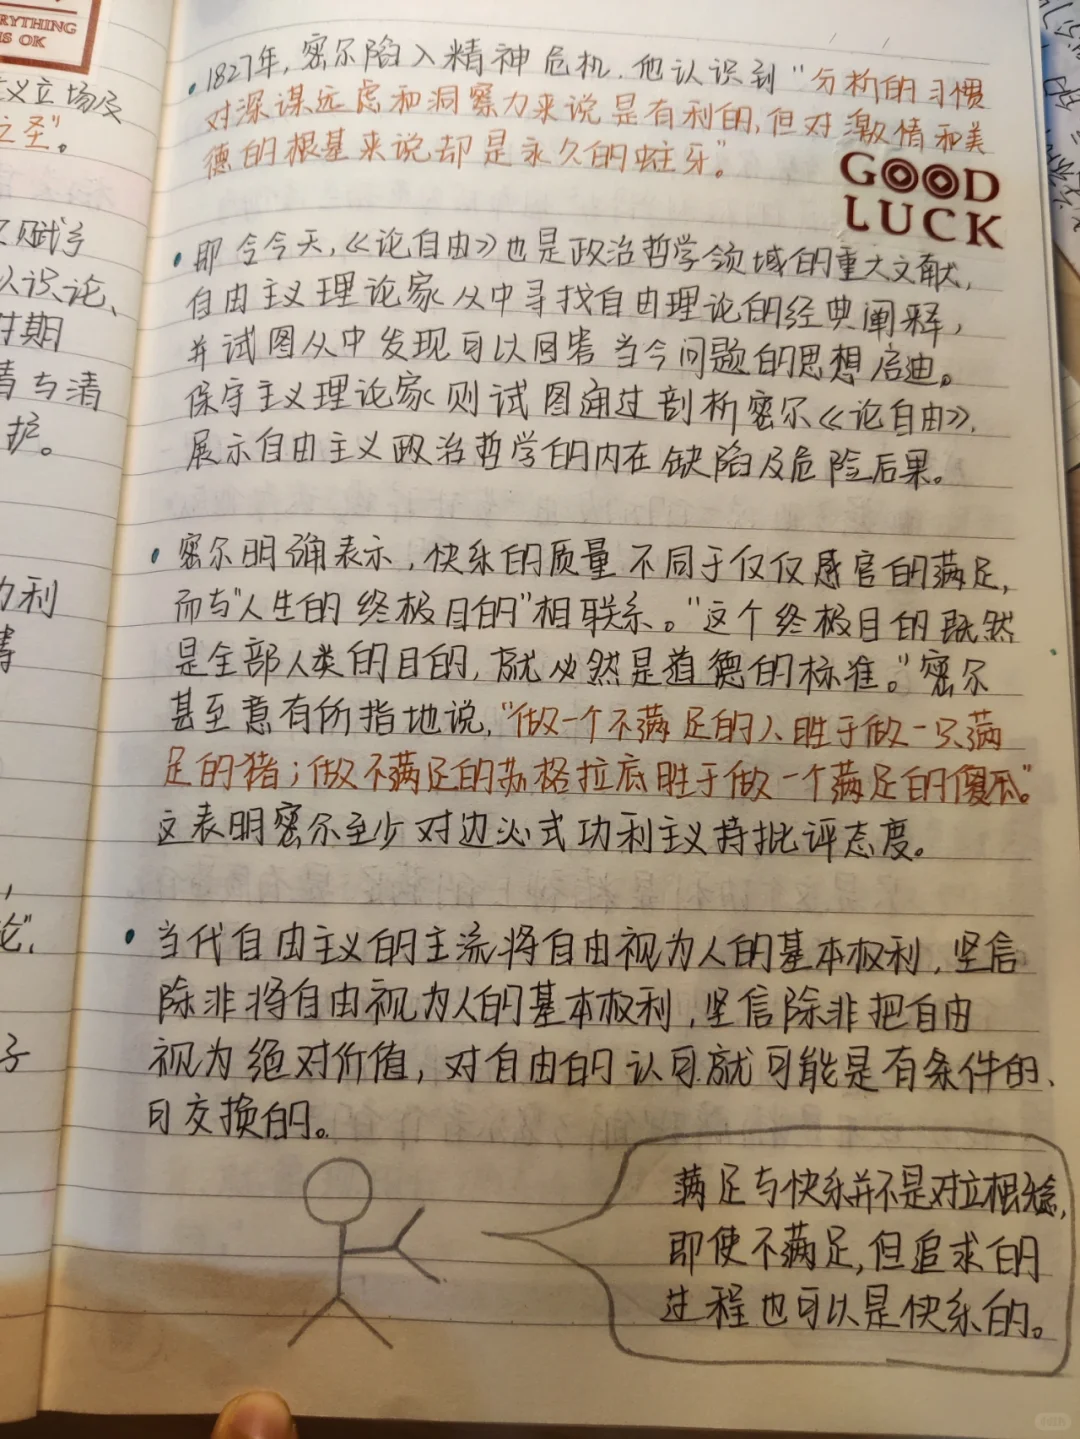 RYTHING
IS OK
义立场及
之圣”。
赋予
认识论、
时期
清与清
护。
功利
论”,
子
·1827年,密尔陷入精神危机.他认识到“分析的习惯
对深谋远虑和洞察力来说是有利的,但对激情和美
德的根基来说却是永久的蛀牙”
GOOD
LUCK
·即令今天,《论自由》也是政治哲学领域的重大文献,
自由主义理论家从中寻找自由理论的经典阐释,
并试图从中发现可以回答当今问题的思想启迪。
保守主义理论家则试图通过剖析密尔《论自由》,
展示自由主义政治哲学的内在缺陷及危险后果。
·密尔明确表示,快乐的质量不同于仅仅感官的满足,
而与“人生的终极目的”相联系。“这个终极目的既然
是全部人类的目的,就必然是道德的标准。”密尔
甚至意有所指地说,“做一个不满足的人胜于做一只满
足的猪;做不满足的苏格拉底胜于做一个满足的傻瓜。”
这表明密尔至少对边沁式功利主义持批评态度。
·当代自由主义的主流将自由视为人的基本权利,坚信
除非将自由视为人的基本权利,坚信除非把自由
视为绝对价值,对自由的认可就可能是有条件的、
可交换的。
满足与快乐并不是对立概念,
即使不满足,但追求的
过程也可以是快乐的。